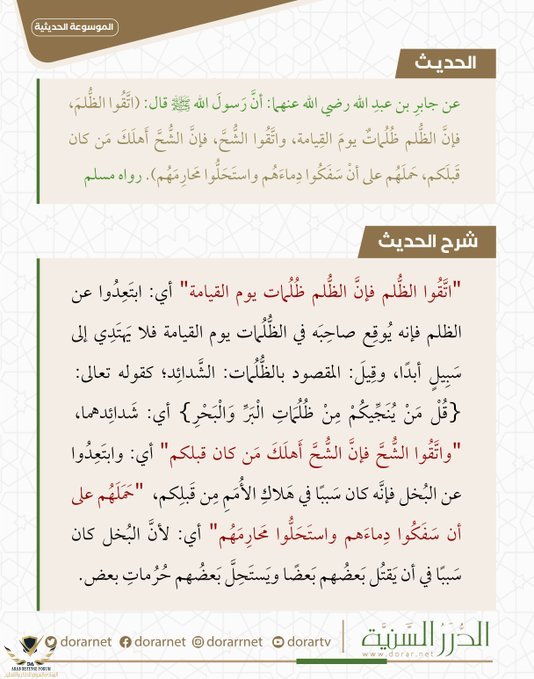 الموسوعة الحديثية
الحديث
عن جابرِ بن عبدِ الله رضي الله عنهما: أنَّ رَسولَ الله ﷺ قال: (اتَّقُوا الظُّلمَ،
فإنَّ الظُّلم ظُلُماتٌ يومَ القِيامة، واتَّقُوا الشُّحَّ، فإنَّ الشُّحَّ أَهلَكَ مَن كان
قَبلَكم، حَملَهُم على أنْ سَفَكُوا دِماءَهُم واستَحَلُّوا مَحارِمَهُم). رواه مسلم
شرح الحديث
"اتَّقُوا الظُّلم فإنَّ الظُّلم ظُلُمات يوم القيامة" أي: ابتَعِدُوا عن
الظلم فإنه يُوقِع صاحِبَه في الظُّلُمات يوم القيامة فلا يَهتَدِي إلى
سَبِيلٍ أبدًا، وقِيلَ: المقصود بالظُّلُمات: الشَّدائِد؛ كقوله تعالى:
{قُلْ مَنْ يُنَجِّيكُمْ مِنْ ظُلُمَاتِ الْبَرِّ وَالْبَحْرِ} أي: شَدائِدهما،
"واتَّقُوا الشُّحَّ فإنَّ الشُّحَّ أَهلَكَ مَن كان قبلكم" أي: وابتَعِدُوا
عن البُخل فإنَّه كان سَببًا في هَلاكِ الأُمَمِ مِن قَبلِكم، "حَمَلَهُم على
أن سَفَكُوا دِماءَهم واستَحَلُّوا مَحارِمَهُم" أي: لأنَّ البُخل كان
سَببًا في أن يَقتُل بَعضُهم بَعضًا ويَستَحِلَّ بَعضُهم حُرُماتِ بعض.
الدُّرَرُ السَّنِيَّة
www.dorar.net
dorarnet dorarnet dorarrnet dorartv
ARAB DEFENSE FORUM